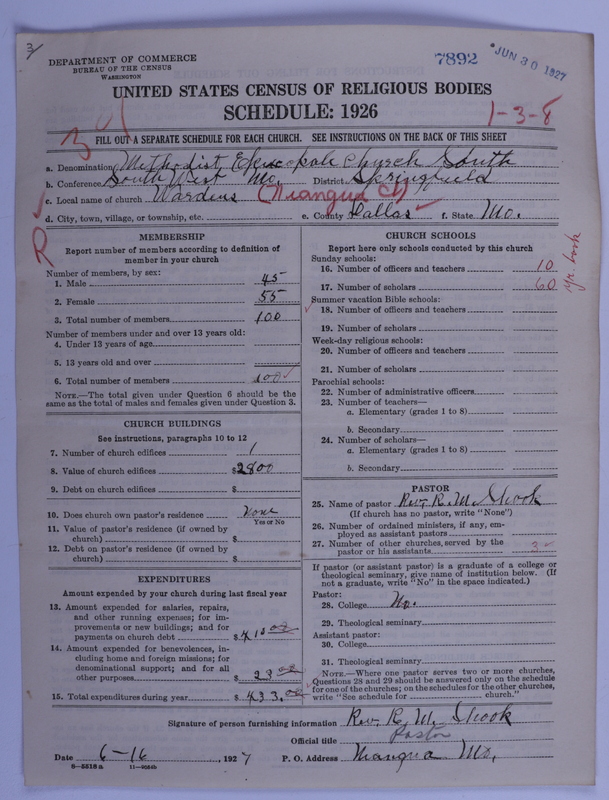 3/
DEPARTMENT OF COMMERCE
BUREAU OF THE CENSUS
WASHINGTON
7892
JUN 30 1927
UNITED STATES CENSUS OF RELIGIOUS BODIES
SCHEDULE: 1926
1-3-8
FILL OUT A SEPARATE SCHEDULE FOR EACH CHURCH. SEE INSTRUCTIONS ON THE BACK OF THIS SHEET
a. Denomination Methodist Episcopale Church South
b. Conference South West Mo. District Springfield
c. Local name of church Wardens (Niangua Ct)
d. City, town, village, or township, etc. e. County Dallas f. State Mo.
R
MEMBERSHIP
Report number of members according to definition of
member in your church
Number of members, by sex:
1. Male 45
2. Female 55
3. Total number of members 100
Number of members under and over 13 years old:
4. Under 13 years of age
5. 13 years old and over
6. Total number of members 100
NOTE.—The total given under Question 6 should be
same as the total of males and females given under Question 3.
CHURCH BUILDINGS
See instructions, paragraphs 10 to 12
7. Number of church edifices 1
8. Value of church edifices $2800
9. Debt on church edifices $
10. Does church own pastor's residence None
Yes or No
11. Value of pastor's residence (if owned by
church) $
12. Debt on pastor's residence (if owned by
church) $
EXPENDITURES
Amount expended by your church during last fiscal year
13. Amount expended for salaries, repairs,
and other running expenses; for im-
provements or new buildings; and for
payments on church debt $410.00
14. Amount expended for benevolences, in-
cluding home and foreign missions; for
denominational support; and for all
other purposes $23.00
15. Total expenditures during year $433.00
CHURCH SCHOOLS
Report here only schools conducted by this church
Sunday schools:
16. Number of officers and teachers 10
17. Number of scholars 60
yr. book
Summer vacation Bible schools:
18. Number of officers and teachers
19. Number of scholars
Week-day religious schools:
20. Number of officers and teachers
21. Number of scholars
Parochial schools:
22. Number of administrative officers
23. Number of teachers—
a. Elementary (grades 1 to 8)
b. Secondary
24. Number of scholars—
a. Elementary (grades 1 to 8)
b. Secondary
PASTOR
25. Name of pastor Rev. R. M. Shook
(If church has no pastor, write "None")
26. Number of ordained ministers, if any, em-
ployed as assistant pastors
27. Number of other churches served by the
pastor or his assistants 3
If pastor (or assistant pastor) is a graduate of a college or
theological seminary, give name of institution below. (If
not a graduate, write "No" in the space indicated.)
Pastor:
28. College No.
29. Theological seminary
Assistant pastor:
30. College
31. Theological seminary
NOTE.—Where one pastor serves two or more churches,
Questions 28 and 29 should be answered only on the schedule
for one of the churches; on the schedules for the other churches,
write "See schedule for church."
Signature of person furnishing information Rev. R. M. Shook
Official title Pastor
Date 6-16, 1927 P. O. Address Niangua Mo.
8-5518a 11-9054b